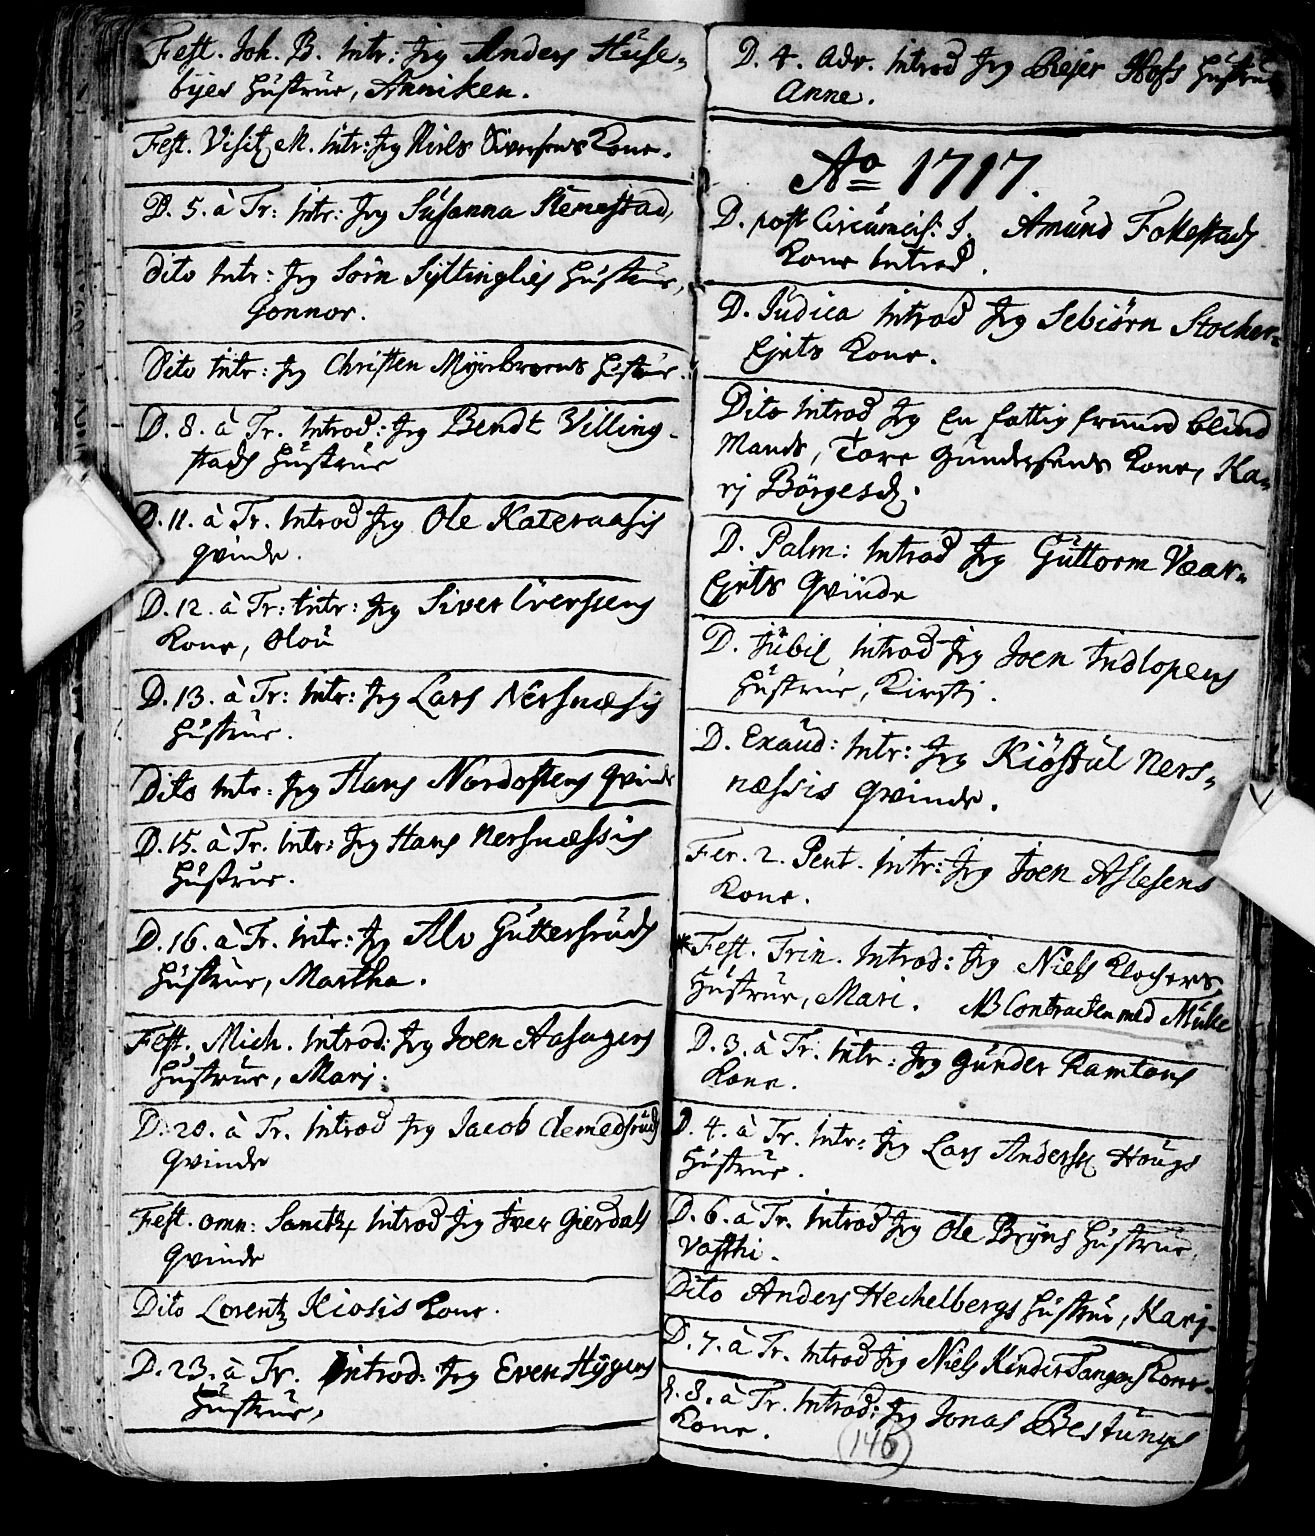 Fest. Joh. B. Intr: Jeg Anders Huse-
byes Hustrue, Anniken.
Fest. Visit. M. Intr: Jeg Niels Siversens Kone.
D. 5. à Tr: Intr: Jeg Susanna Stenestad,
dito Intr: Jeg Sørn Syltinglies Hustrue,
Gonnor.
Dito intr: Jeg Christen Myrebraaens Hustrue.
D. 8. à Tr. Introd: Jeg Bendt Villing-
stads Hustrue
D. 11. à Tr. Introd Jeg Ole Kateraasis
qvinde.
D. 12. à Tr: intr: Jeg Siver Iverssens
Kone, Olou
D. 13. à Tr: Intr: Jeg Lars Nersnæsis
Hustrue.
Dito Intr: Jeg Hans Nordostens qvinde
D. 15. à Tr. Intr: Jeg Hans Nersnæssis
Hustrue.
D. 16. à Tr. Intr: Jeg Alv Guttersruds
Hustrue, Martha.
Fest. Mich. Introd: Jeg Joen Aasagers
Hustrue, Marj.
D. 20. à Tr. Introd Jeg Jacob Clemedsruds
Qvinde
Fest. omn: Sanct. Introd Jeg Iver Gierdals
qvinde
Dito Lorentz Kiosis Kone.
D. 23. à Tr. Introd: Jeg Even Hygens
Hustrue,
D. 4. Adv. Introd Jeg Reier Hofs Hustrue
Anne.
Ao 1717.
D. post Circumcis: J. Amund Follestads
Kone Introd.
D. Judica introd Jeg Sebiørn Stocker-
Ejets Kone.
Dito Introd Jeg En fattig fremmed blind
Mands, Tore Gundersens Kone, Ka-
rj Børgesd.
D. Palm: Introd Jeg Guttorm Vear-
Ejets Qvinde
D. Jubil introd Jeg Joen Indlopens
Hustrue, Kirstj.
D. Exaud: Intr: Jeg Kiøstul Ners-
næssis qvinde.
Fer. 2. Pent. Intr: Jeg Joen Aslesens
Kone.
*Fest. Trin. Introd: Jeg Niels Klockers
Hustrue, Mari. NB Contracten med Mulle
D. 3. à Tr. Intr: Jeg Gunder Ramtons
Kone.
D. 4. à Tr. Intr: Jeg Lars Anderss. Hougs
Hustrue.
D. 6. à Tr. Introd Jeg Ole Bryns Hustrue,
Vasthi.
Dito Anders Heckelbergs Hustrue, Karj.
D. 7. à Tr. Introd Jeg Niels KinderTangens Kone.
D. 8. à Tr. Introd: Jeg Jonas Bestunges
Kone.
(146)